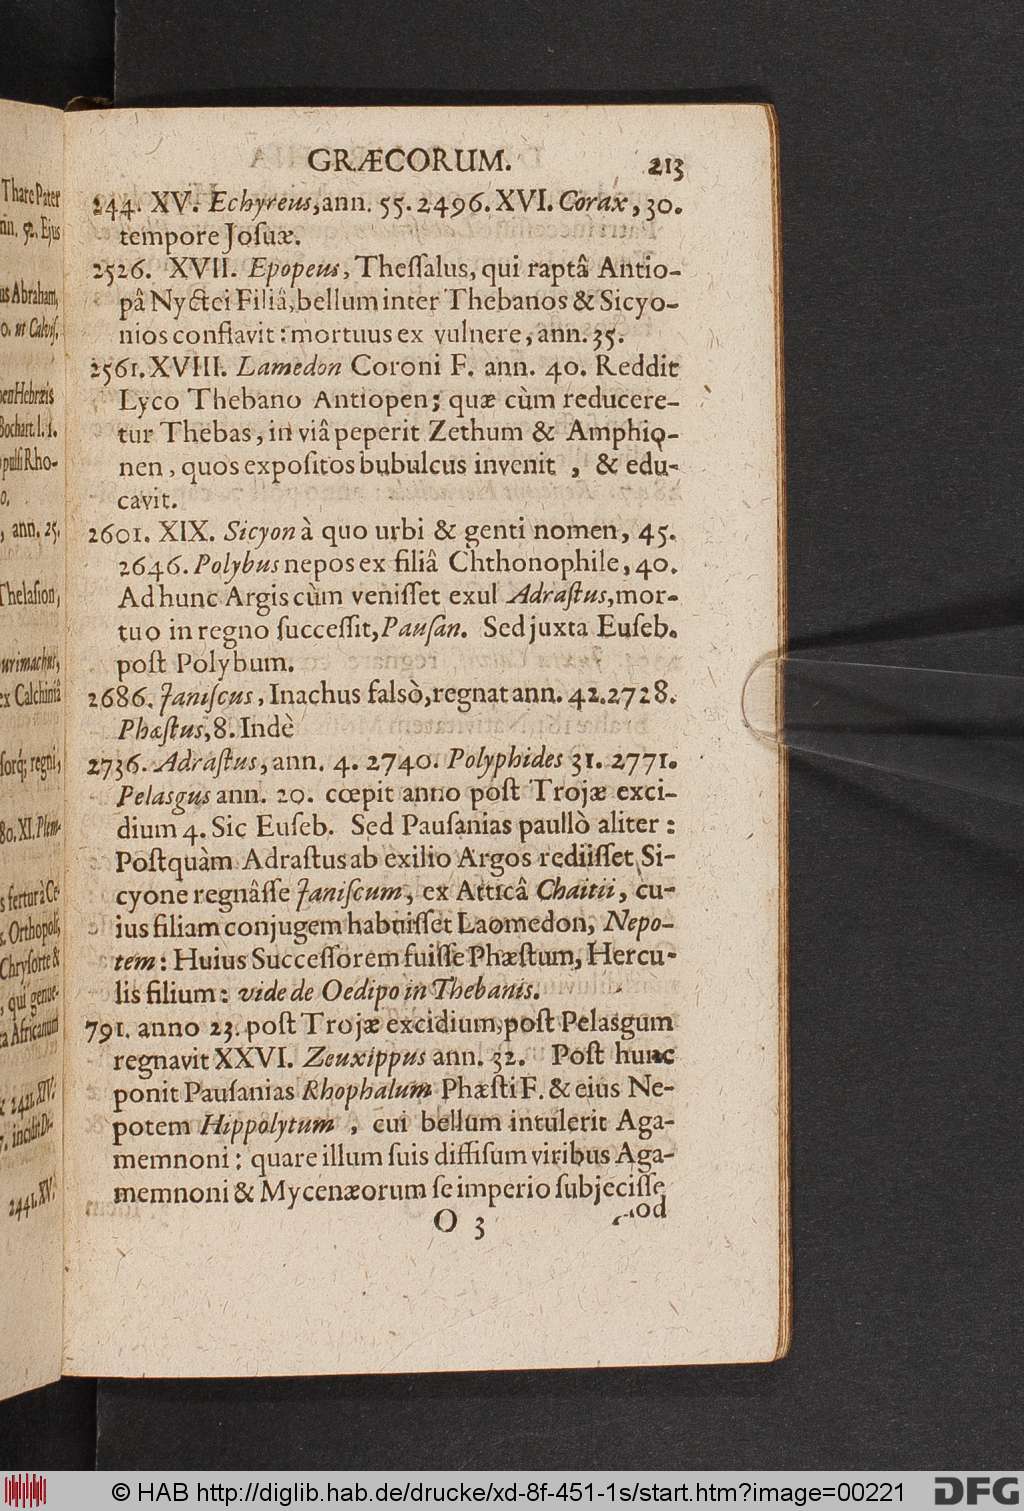 Thare Pater
nin. 52. Ejus
us Abraham,
o. ut Calvis.
pen Hebræis
Bochart. l. 1.
pulsi Rho-
o.
, ann. 25.
Thelasion,
urimachus,
ex Calchiniâ
sorq; regni,
80. XI. Plem-
s fertur à Ce-
s. Orthopoli,
Chrysorte &
, qui genue-
ta Africanum
& 2421. XIV.
7. incidit D-
2441. XV.
GRÆCORUM. 213
244. XV. Echyreus, ann. 55. 2496. XVI. Corax, 30.
tempore Josuæ.
2526. XVII. Epopeus, Theſſalus, qui raptâ Antio-
pâ Nyctei Filiâ, bellum inter Thebanos & Sicyo-
nios conflavit: mortuus ex vulnere, ann. 35.
2561. XVIII. Lamedon Coroni F. ann. 40. Reddit
Lyco Thebano Antiopen; quæ cùm reducere-
tur Thebas, in viâ peperit Zethum & Amphio-
nen, quos expoſitos bubulcus invenit, & edu-
cavit.
2601. XIX. Sicyon à quo urbi & genti nomen, 45.
2646. Polybus nepos ex filiâ Chthonophile, 40.
Ad hunc Argis cùm veniſſet exul Adraſtus, mor-
tuo in regno ſucceſſit, Pauſan. Sed juxta Euſeb.
poſt Polybum.
2686. Janiſcus, Inachus falsò, regnat ann. 42. 2728.
Phæſtus, 8. Indè
2736. Adraſtus, ann. 4. 2740. Polyphides 31. 2771.
Pelasgus ann. 20. cœpit anno poſt Trojæ exci-
dium 4. Sic Euſeb. Sed Pauſanias paullò aliter:
Poſtquàm Adraſtus ab exilio Argos rediiſſet, Si-
cyone regnâſſe Janiſcum, ex Atticâ Chaitii, cu-
ius filiam conjugem habuiſſet Laomedon, Nepo-
tem: Huius Succeſſorem fuiſſe Phæſtum, Hercu-
lis filium: vide de Oedipo in Thebanis.
791. anno 23. poſt Trojæ excidium, poſt Pelasgum
regnavit XXVI. Zeuxippus ann. 32. Poſt hunc
ponit Pauſanias Rhophalum Phæſti F. & eius Ne-
potem Hippolytum, cui bellum intulerit Aga-
memnoni: quare illum ſuis diffiſum viribus Aga-
memnoni & Mycenæorum ſe imperio ſubjeciſſe
O 3
© HAB http://diglib.hab.de/drucke/xd-8f-451-1s/start.htm?image=00221
DFG